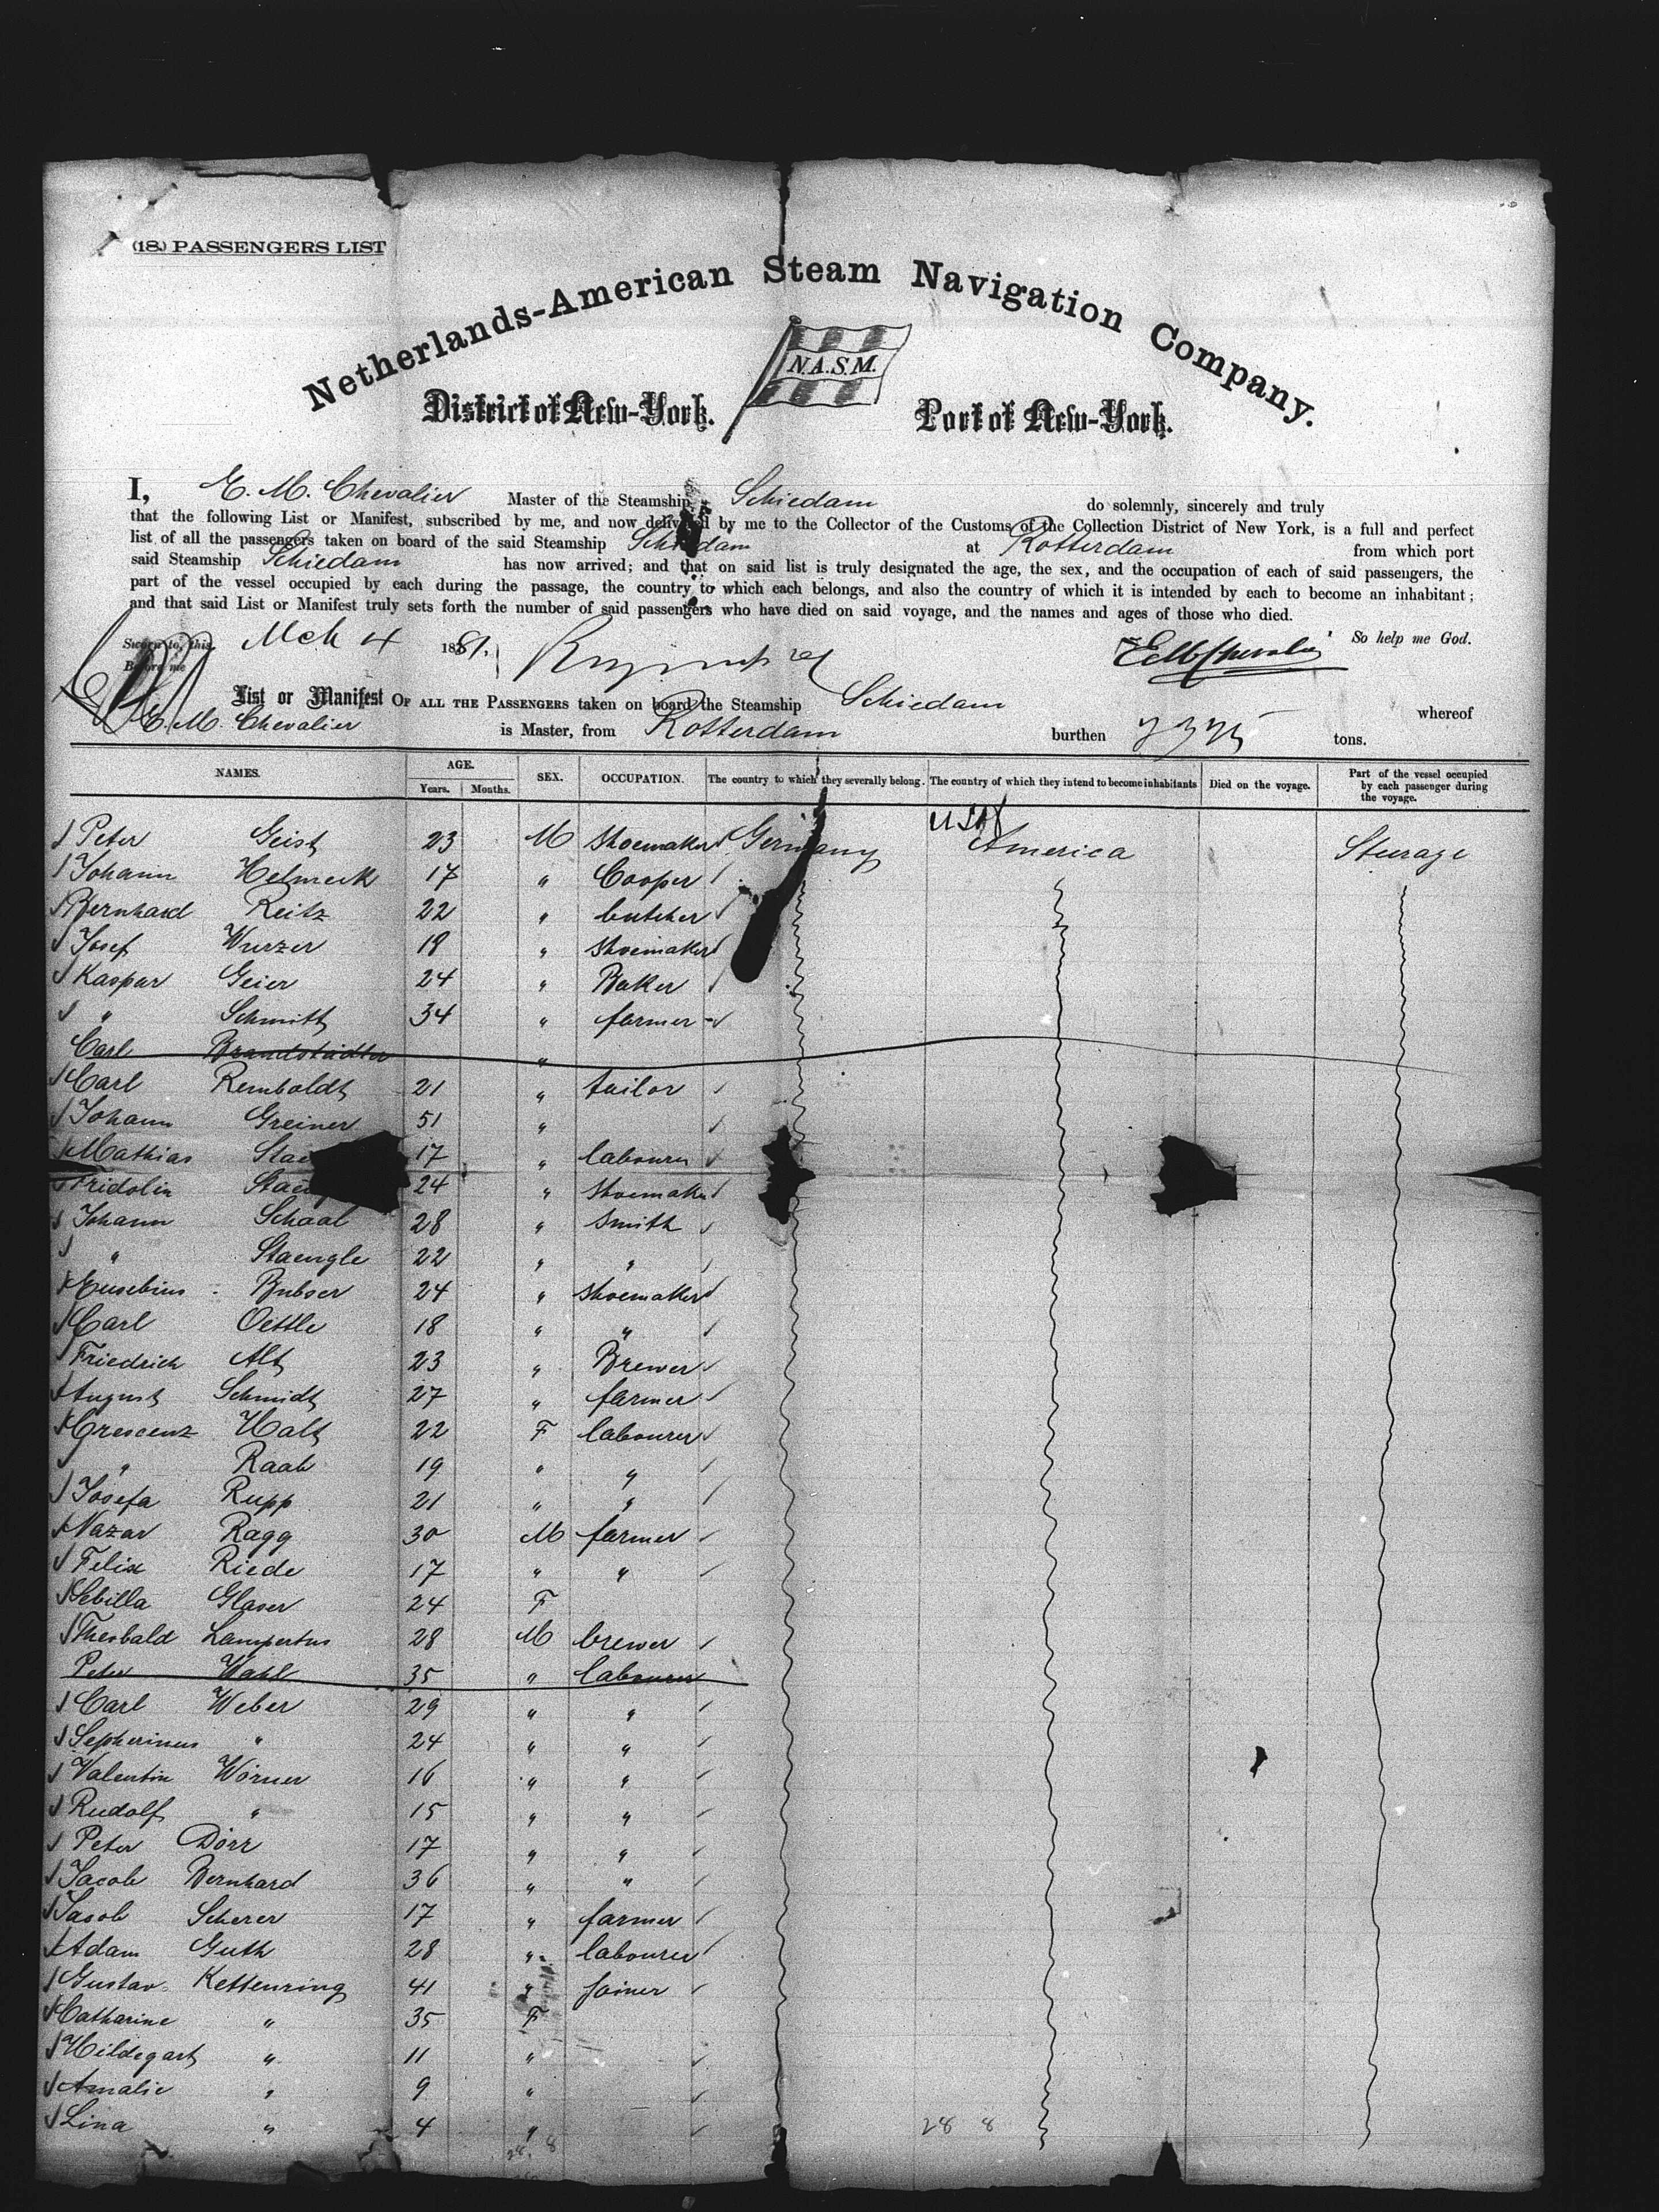 (18.) PASSENGERS LIST
Netherlands-American Steam Navigation Company.
N.A.S.M.
District of New-York. Port of New-York.
I, E. M. Chevalier Master of the Steamship Schiedam do solemnly, sincerely and truly
that the following List or Manifest, subscribed by me, and now delivered by me to the Collector of the Customs of the Collection District of New York, is a full and perfect
list of all the passengers taken on board of the said Steamship Schiedam at Rotterdam from which port
said Steamship Schiedam has now arrived; and that on said list is truly designated the age, the sex, and the occupation of each of said passengers, the
part of the vessel occupied by each during the passage, the country to which each belongs, and also the country of which it is intended by each to become an inhabitant;
and that said List or Manifest truly sets forth the number of said passengers who have died on said voyage, and the names and ages of those who died.
So help me God.
Sworn to, this Mch 4 1881. E M Chevalier
Before me
List or Manifest OF ALL THE PASSENGERS taken on board the Steamship Schiedam whereof
E. M. Chevalier is Master, from Rotterdam burthen tons.
NAMES. AGE. Years. Months. SEX. OCCUPATION. The country to which they severally belong. The country of which they intend to become inhabitants Died on the voyage. Part of the vessel occupied by each passenger during the voyage.
USA
Peter Geist 23 M Shoemaker Germany America Steurage
Johann Helmeck 17 " Cooper
Bernhard Reitz 22 " butcher
Josef Wurzer 19 " Shoemaker
Kaspar Geier 24 " Baker
" Schmitt 34 " farmer
Carl Brandstädter "
Carl Remboldt 21 " tailor
Johann Greiner 51 "
Mathias 17 " labourer
Fridolin 24 " Shoemaker
Johann Schaal 28 " Smith
" Staengle 22 " "
Eusebius Bubser 24 " Shoemaker
Carl Oettle 18 " "
Friedrich Alt 23 " Brewer
August Schmidt 27 " farmer
Crescenz Halt 22 F labourer
" Raab 19 " "
Josefa Rupp 21 " "
Nazar Ragg 30 M farmer
Felix Riede 17 " "
Sebilla Glaser 24 F
Theobald Lampertus 28 M brewer
Peter Wahl 35 " labourer
Carl Weber 29 " "
Sepherinus " 24 " "
Valentin Wörner 16 " "
Rudolf " 15 " "
Peter Dörr 17 " "
Jacob Bernhard 36 " "
Jacob Scherer 17 " farmer
Adam Guth 28 " labourer
Gustav Kettenring 41 " joiner
Catharine " 35 F
Hildegart " 11 "
Amalie " 9 "
Lina " 4 "
28 8 28 8